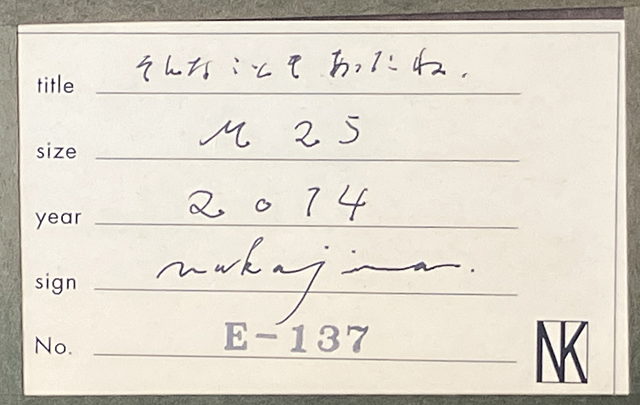 title そんなこともあったね.
size M 25
year 2014
sign nakajima.
No. E-137
NK